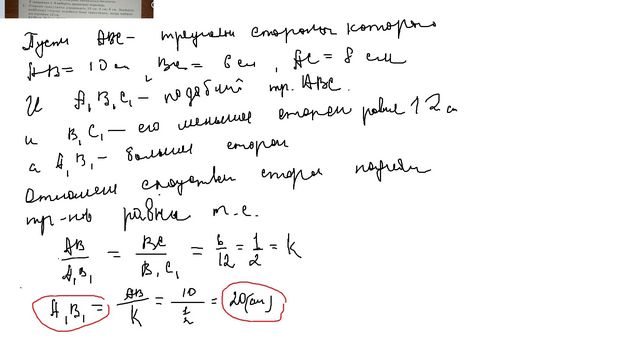 Пусть ABC - треугольн стороны которого
AB = 10 см, BC = 6 см, AC = 8 см
и A₁B₁C₁ - подобный тр. ABC.
и B₁C₁ - его меньшая сторон равна 12 см
а A₁B₁ - большая сторон
Отношен сходствен сторон
тр-ков равны т.е.
AB/A₁B₁ = BC/B₁C₁ = 6/12 = 1/2 = K
A₁B₁ = AB/K = 10/(1/2) = 20(см)